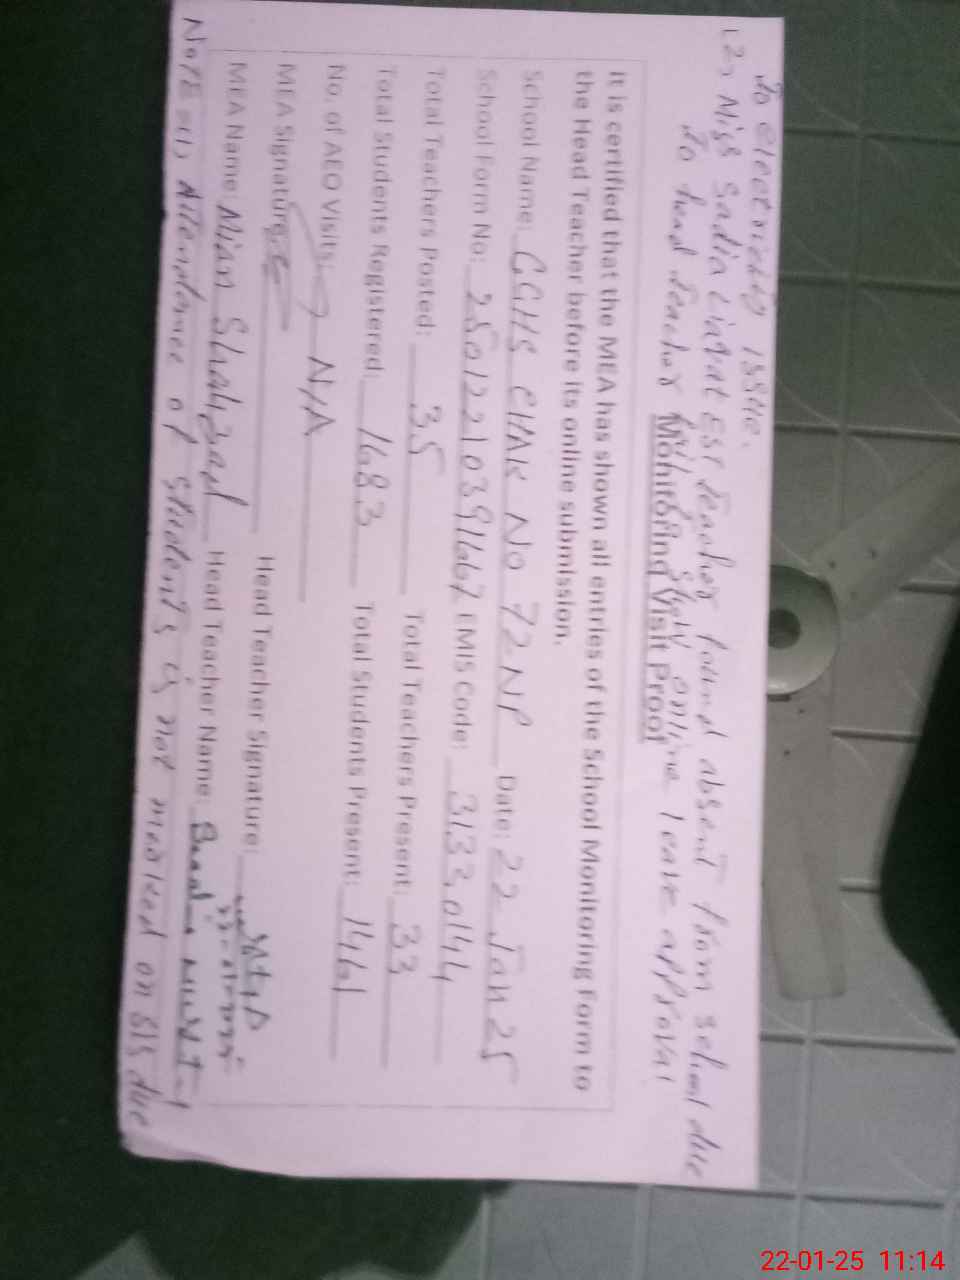 to electricity issue.
(2) Miss Sadia Liaqat EST teacher found absent from school due
to head teacher not show online leave approval
Monitoring Visit Proof
It is certified that the MEA has shown all entries of the School Monitoring Form to
the Head Teacher before its online submission.
School Name: GGHS CHAK No 72 NP Date: 22 Jan 25
School Form No: EMIS Code:
Total Teachers Posted: 35 Total Teachers Present: 33
Total Students Registered: 1683 Total Students Present: 1461
No. of AEO Visits: N/A
MEA Signature: Head Teacher Signature:
MEA Name: Mian Shahzad Head Teacher Name:
NOTE (1) Attendance of students is not marked on SIS due
22-01-25 11:14